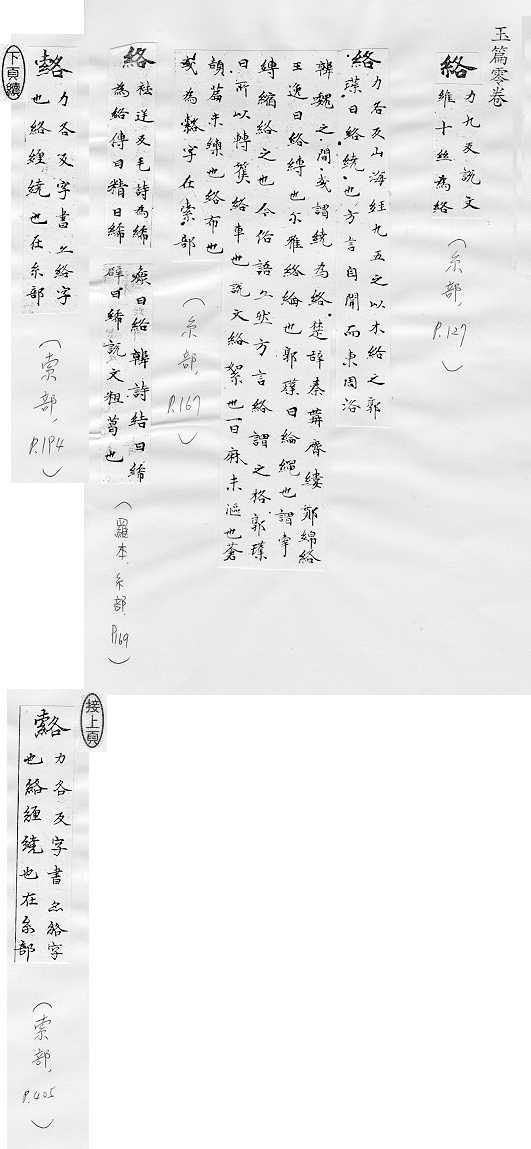 玉篇零卷
綹
力九反說文
維十絲為綹
(糸部,
P.127
)
絡
力各反山海經九丘之以木絡之郭
璞曰絡繞也方言自關而東周洛
韓魏之間或謂繞為絡楚辭秦篝齊縷鄭綿絡
王逸曰絡縛也尔雅絡綸也郭璞曰綸繩也謂牢
縛縮絡之也今俗語亦然方言絡謂之格郭璞
曰所以轉籆絡車也說文絡絮也一曰麻未漚也蒼
頡篇未練也絡布也
或為䌴字在索部
(糸部,
P.167
)
絡
袪逆反毛詩為絺
為綌傳曰精曰絺
麁曰綌韓詩結曰絺
辟曰綌說文粗葛也
(羅本,糸部,
P.169
)
力各反字書亦絡字
也絡纏繞也在糸部
(索部,
P.194
)
下頁續
接上頁
力各反字書亦絡字
也絡纏繞也在糸部
(索部,
P.405
)